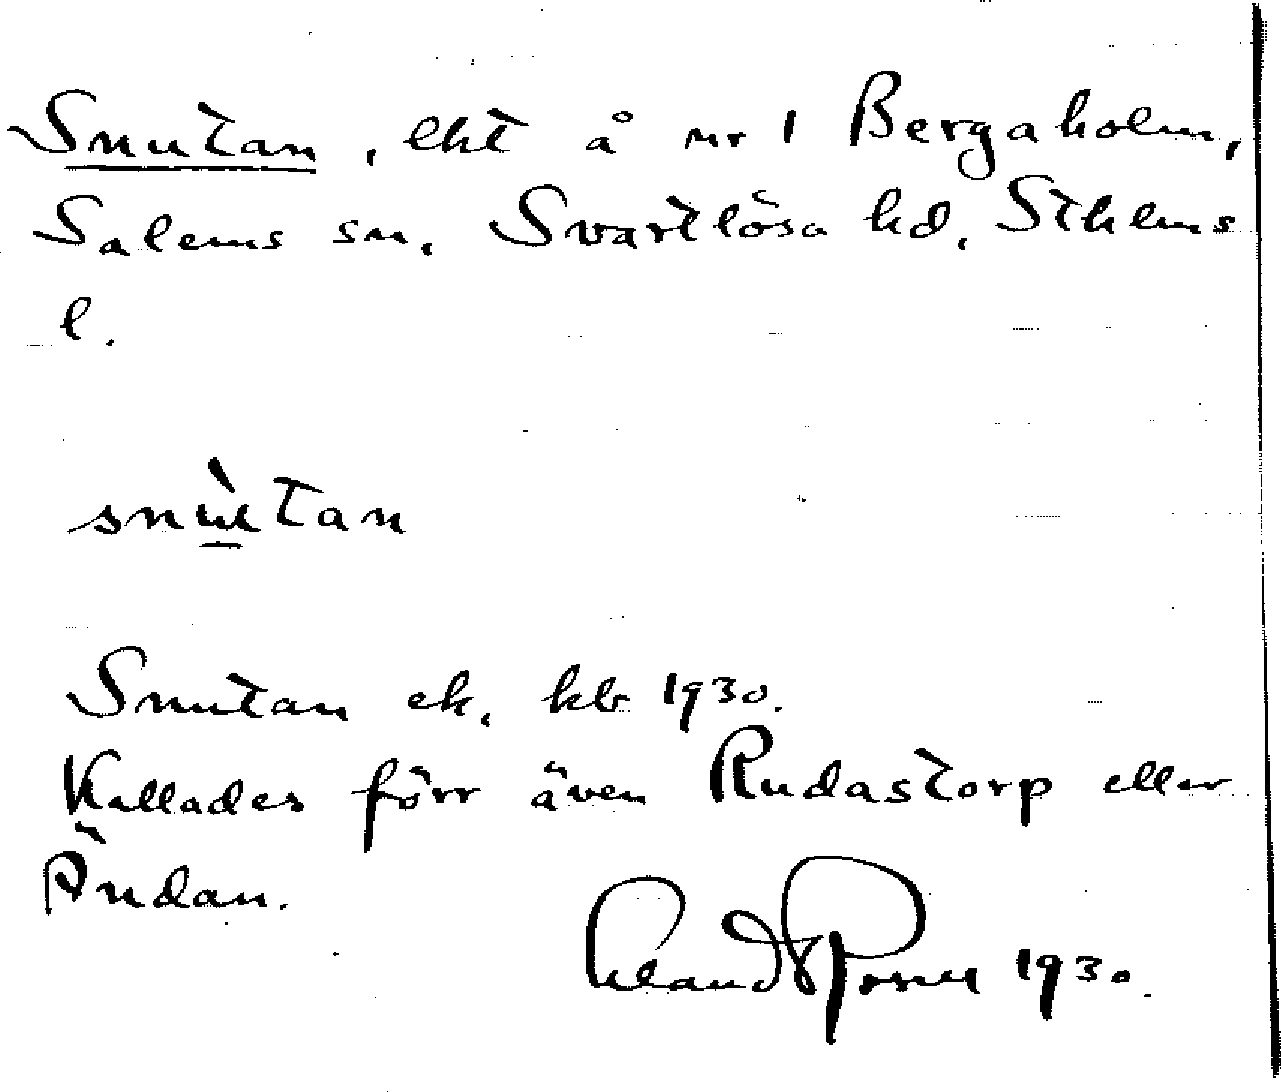 Snutan, lht å nr 1 Bergaholm,
Salems sn. Svartlösa hd. Sthlms
l.
snùtan
Snutan ek. kb 1930.
Kallades förr även Rudastorp eller
Ändan.
1930.